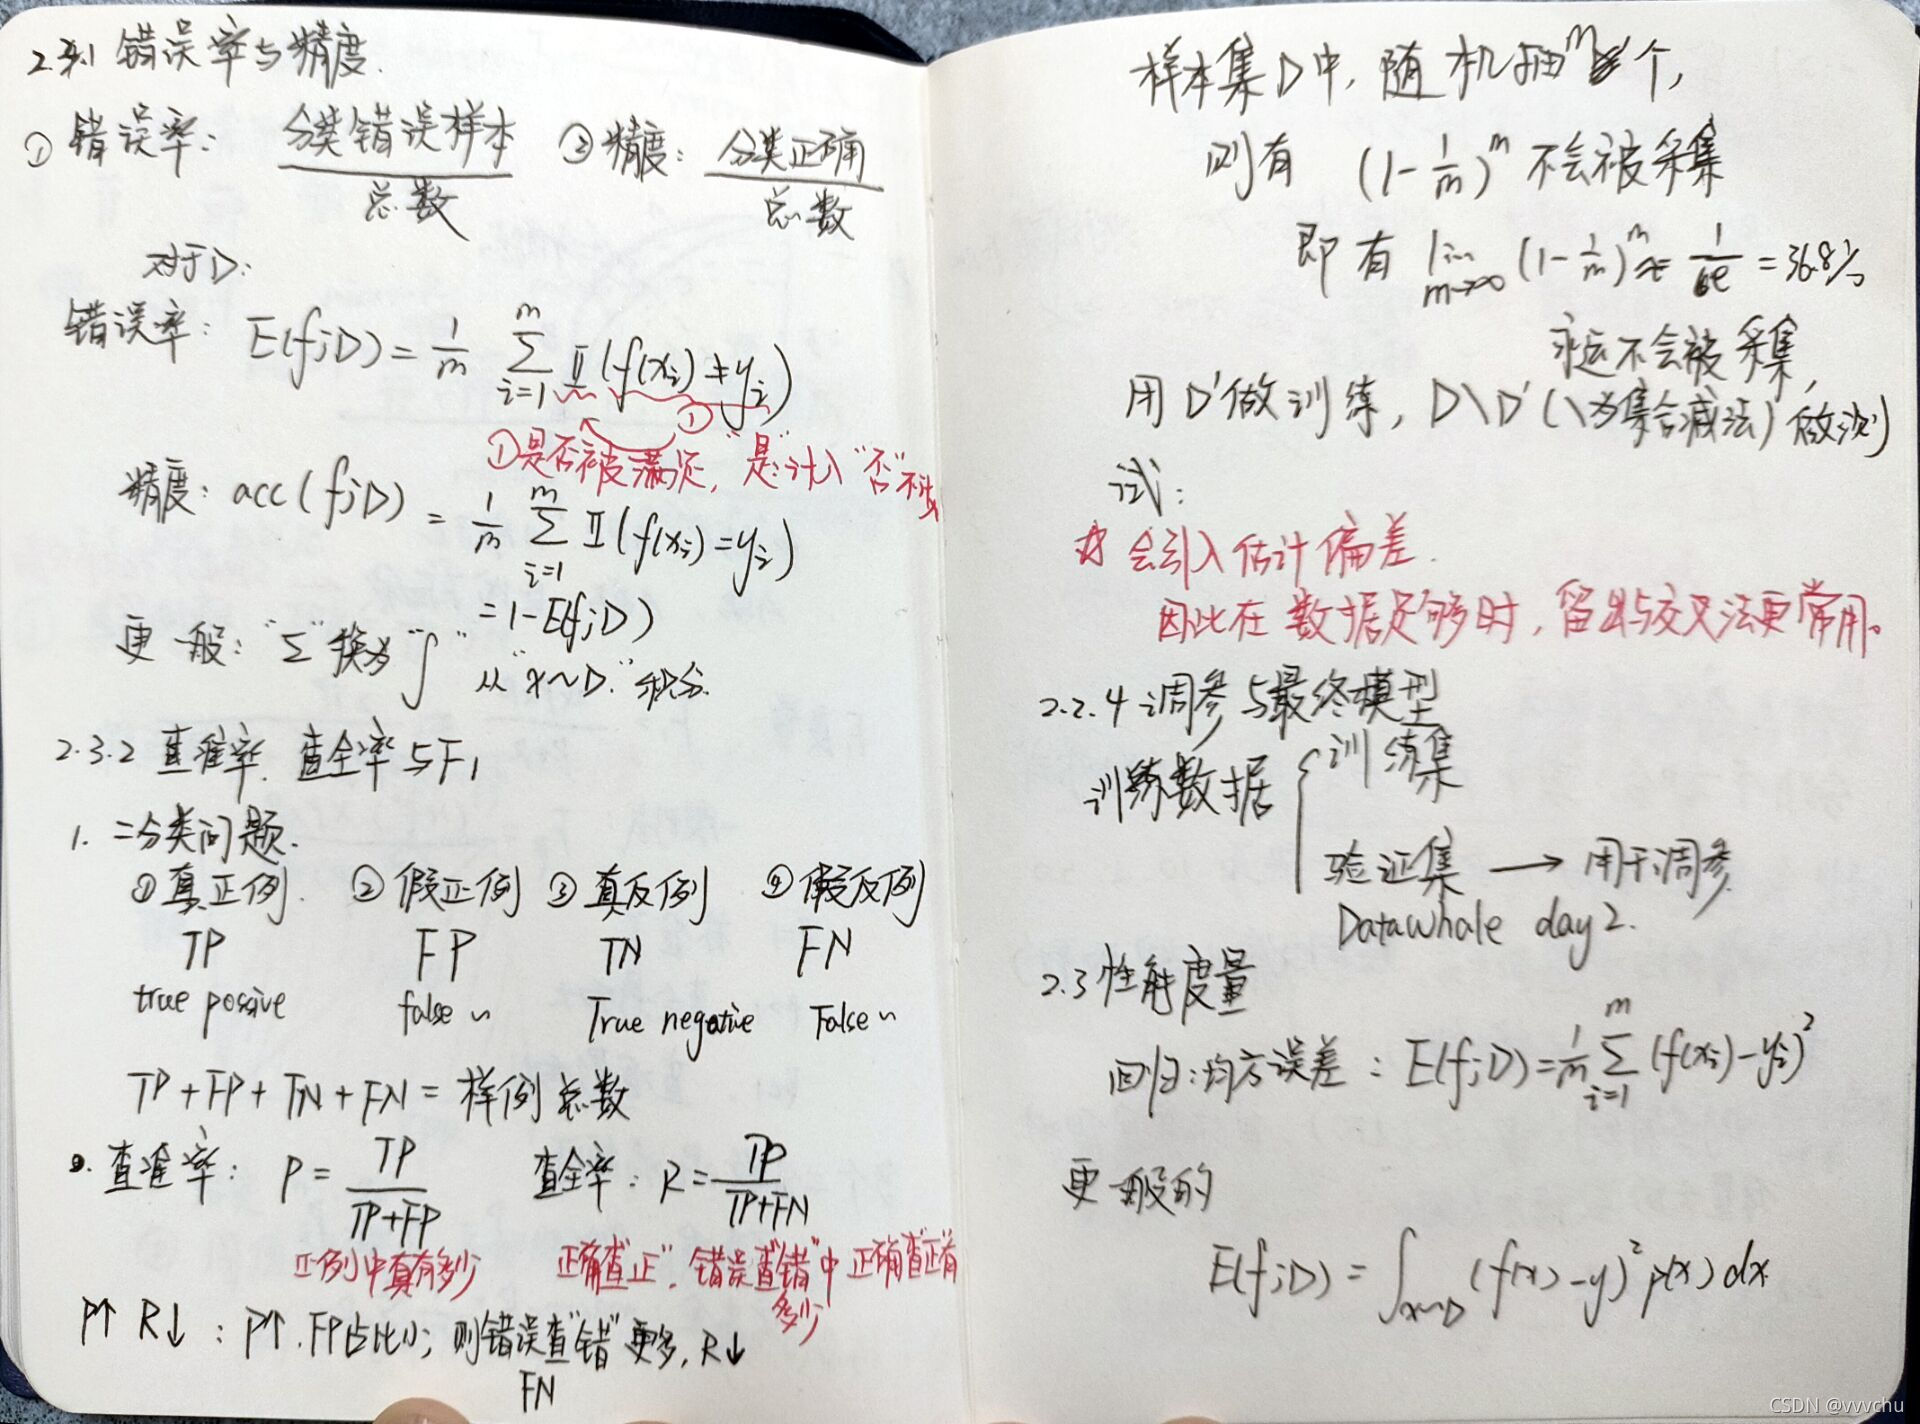 2.3.1 错误率与精度.
① 错误率: 分类错误样本/总数 ② 精度: 分类正确/总数
对于D:
错误率: E(f;D) = 1/m ∑_{i=1}^{m} 𝕀(f(xᵢ)≠yᵢ)
①
①是否被满足, "是"计入 "否"不计
精度: acc(f;D) = 1/m ∑_{i=1}^{m} 𝕀(f(xᵢ)=yᵢ)
=1-E(f;D)
更一般: "∑"换为"∫" 从"x~D."积分.
2.3.2 查准率. 查全率与F1
1. 二分类问题.
①真正例. ②假正例 ③真反例 ④假反例
TP FP TN FN
true possive false ~ True negative False ~
TP+FP+TN+FN=样例总数
2. 查准率: P=TP/(TP+FP) 查全率: R=TP/(TP+FN)
正例中真有多少 正确查"正", 错误查"错"中正确查正有多少
P↑ R↓ : P↑. FP占比小; 则错误查"错"更多, R↓
FN
样本集D中, 随机抽m个,
则有 (1-1/m)^m 不会被采集
即有 lim_{m→∞} (1-1/m)^m = 1/e =36.8%
永远不会被采集,
用D'做训练, D\D'(\为集合减法)做测
试:
☆ 会引入估计偏差.
因此在数据足够时, 留出与交叉法更常用。
2.2.4 调参与最终模型
训练数据 { 训练集
验证集 → 用于调参
Datawhale day2.
2.3 性能度量
回归:均方误差: E(f;D)=1/m ∑_{i=1}^{m} (f(xᵢ)-yᵢ)²
更一般的
E(f;D) = ∫_{x~D} (f(x)-y)² p(x)dx
CSDN @vvvchu